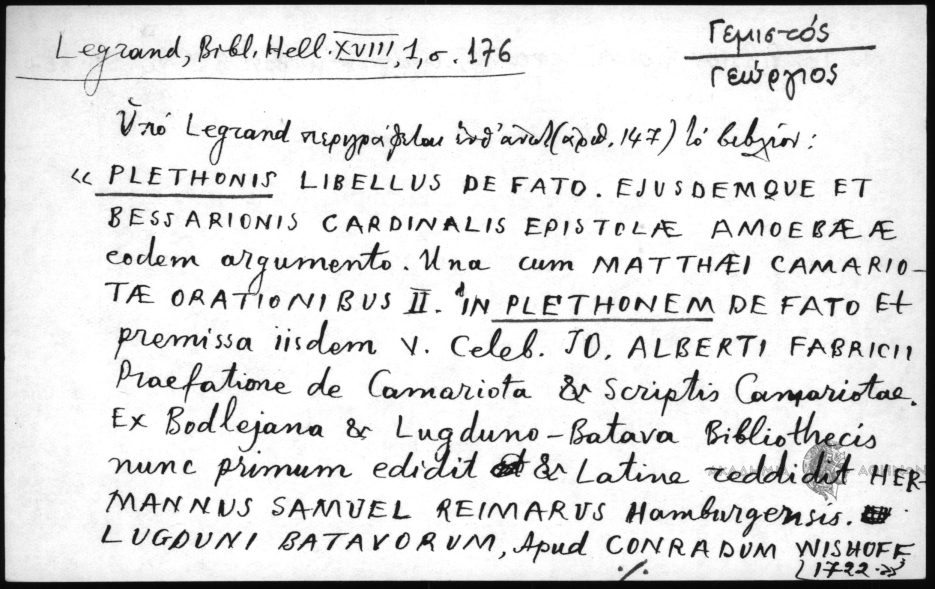 Legrand, Bibl. Hell. XVIII, 1, σ. 176
Γεμιστός
Γεώργιος
Ὑπό Legrand περιγράφεται ὑπ' ἀριθ. 147) τό βιβλίον:
« PLETHONIS LIBELLUS DE FATO. EJUSDEMQUE ET
BESSARIONIS CARDINALIS EPISTOLÆ AMOEBÆÆ
eodem argumento. Una cum MATTHÆI CAMARIO-
TÆ ORATIONIBUS II. IN PLETHONEM DE FATO Et
premissa iisdem V. Celeb. JO. ALBERTI FABRICII
Praefatione de Camariota & Scriptis Camariotae.
Ex Bodlejana & Lugduno-Batava Bibliothecis
nunc primum edidit & Latine reddidit HER-
MANNUS SAMUEL REIMARUS Hamburgensis.
LUGDUNI BATAVORUM, Apud CONRADUM WISHOFF
1722.»
./.